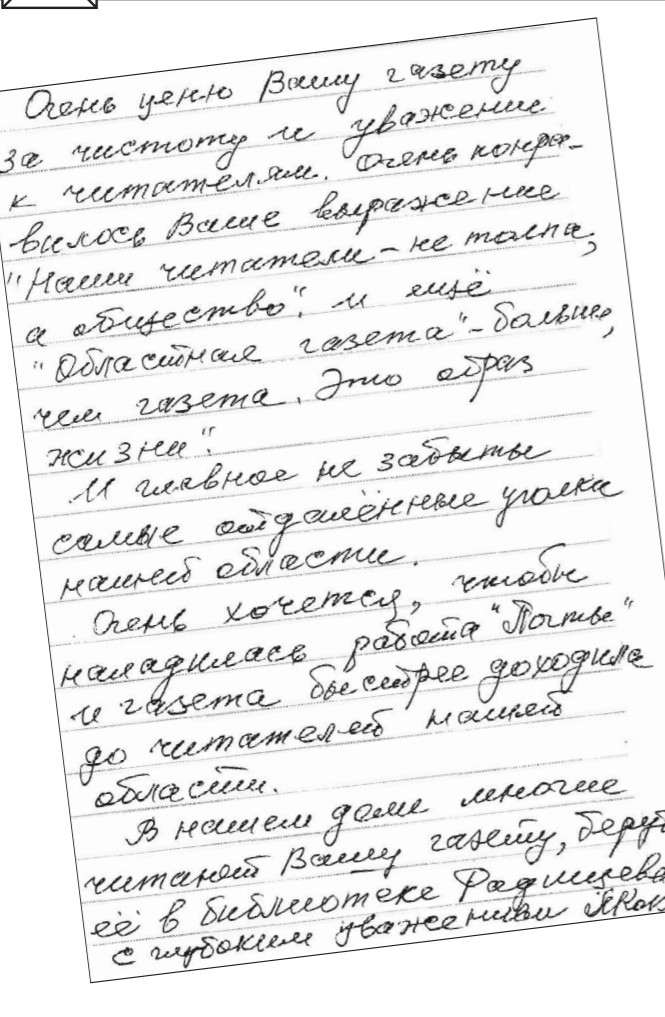 Очень ценю Вашу газету
за чистоту и уважение
к читателям. Очень понра-
вилось Ваше выражение
"Наши читатели - не толпа,
а общество". и ещё
"Областная газета" - больше,
чем газета. Это образ
жизни".
И главное не забыты
самые отдалённые уголки
нашей области.
Очень хочется, чтобы
наладилась работа "Почты"
и газета быстрее доходила
до читателей нашей
области.
В нашем доме многие
читают Вашу газету, берут
её в библиотеке Радищева
с глубоким уважением